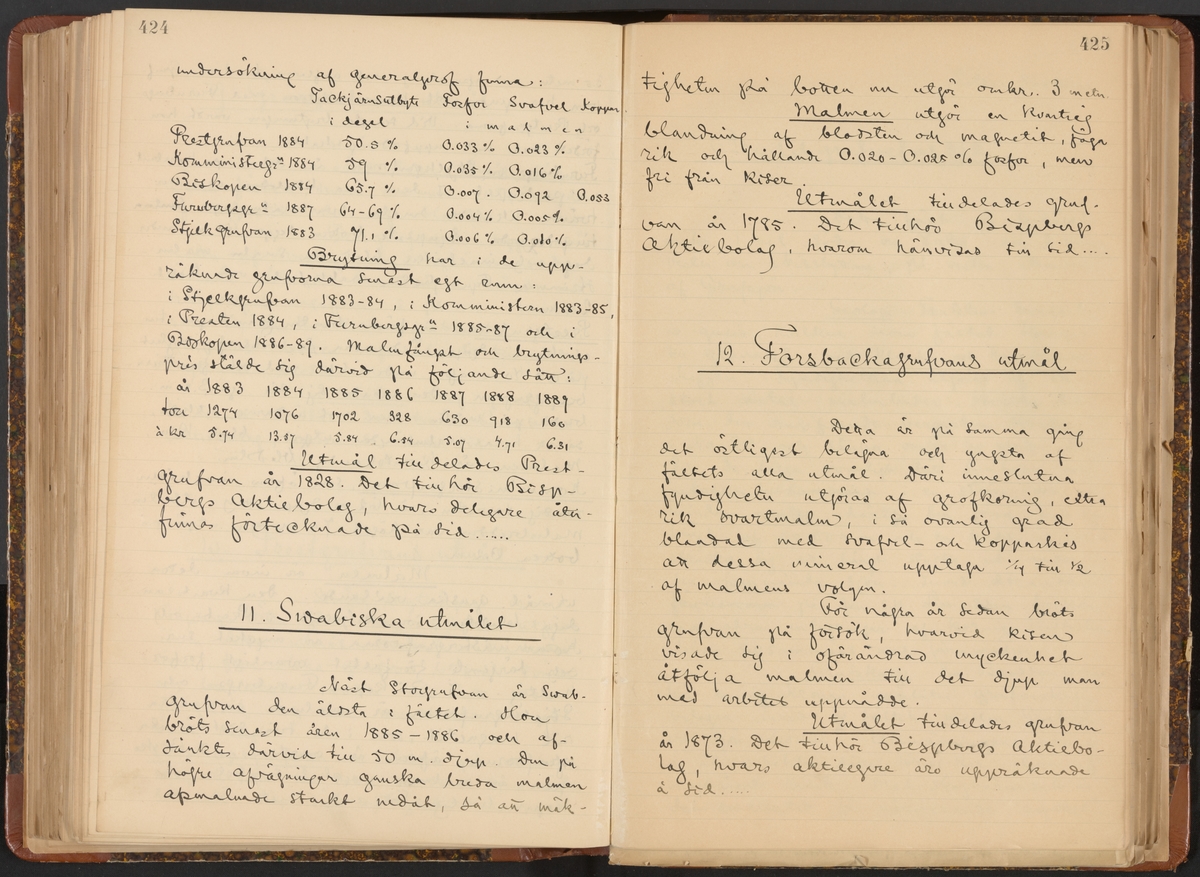 424
undersökning af generalprof finna:
Tackjärnsutbyte Fosfor Svafvel Koppar
i degel i malmen
Prestgrufvan 1884 50.5 % 0.033 % 0.023 %
Komministergrn 1884 59 % 0.035 % 0.016 %
Biskopen 1884 65.7 % 0.007 . 0.092 0.053
Furubergsgrn 1887 64-69 % 0.004 % 0.005 %
Stjelkgrufvan 1883 71.1 % 0.006 % 0.010 %
Brytning har i de upp-
räknade grufvorna senast egt rum:
i Stjelkgrufvan 1883-84, i Komministern 1883-85,
i Presten 1884, i Furubergsgrn 1885-87 och i
Biskopen 1886-89. Malmfångst och brytnings-
pris stälde sig därvid på följande sätt:
år 1883 1884 1885 1886 1887 1888 1889
ton 1274 1076 1702 328 630 918 160
à kr 5.74 13.57 5.84 6.54 5.07 4.71 6.31
Utmål tilldelades Prest-
grufvan år 1828. Det tillhör Bisp-
bergs Aktiebolag, hvars delegare åter-
finnas förtecknade på sid.....
11. Swabiska utmålet
Näst Storgrufvan är Swab-
grufvan den äldsta i fältet. Hon
bröts senast åren 1885-1886 och af-
sänktes därvid till 50 m. djup. Den på
högre afvägningar ganska breda malmen
afsmalnade starkt nedåt, så att mäk-
425
tigheten på botten nu utgör omkr. 3 metr.
Malmen utgör en kvartsig
blandning af blodsten och magnetit, fago
rik och hållande 0.020-0.025 % fosfor, men
fri från kiser.
Utmålet tilldelades gruf-
van år 1785. Det tillhör Bispbergs
Aktiebolag, hvarom hänvisas till sid....
12. Forsbackagrufvans utmål
Detta är på samma gång
det östligast belägna och yngsta af
fältets alla utmål. Däri inneslutna
fyndigheter utgöras af grofkornig, eller
rik svartmalm, i så ovanlig grad
blandad med svafvel- och kopparkis
att dessa mineral upptaga 1/4 till 1/2
af malmens volym.
För några år sedan bröts
grufvan på försök, hvarvid kisen
visade sig i oförändrad myckenhet
åtfölja malmen till det djup man
med arbetet uppnådde.
Utmålet tilldelades grufvan
år 1873. Det tillhör Bispbergs Aktiebo-
lag, hvars aktieegare äro uppräknade
å sid.....